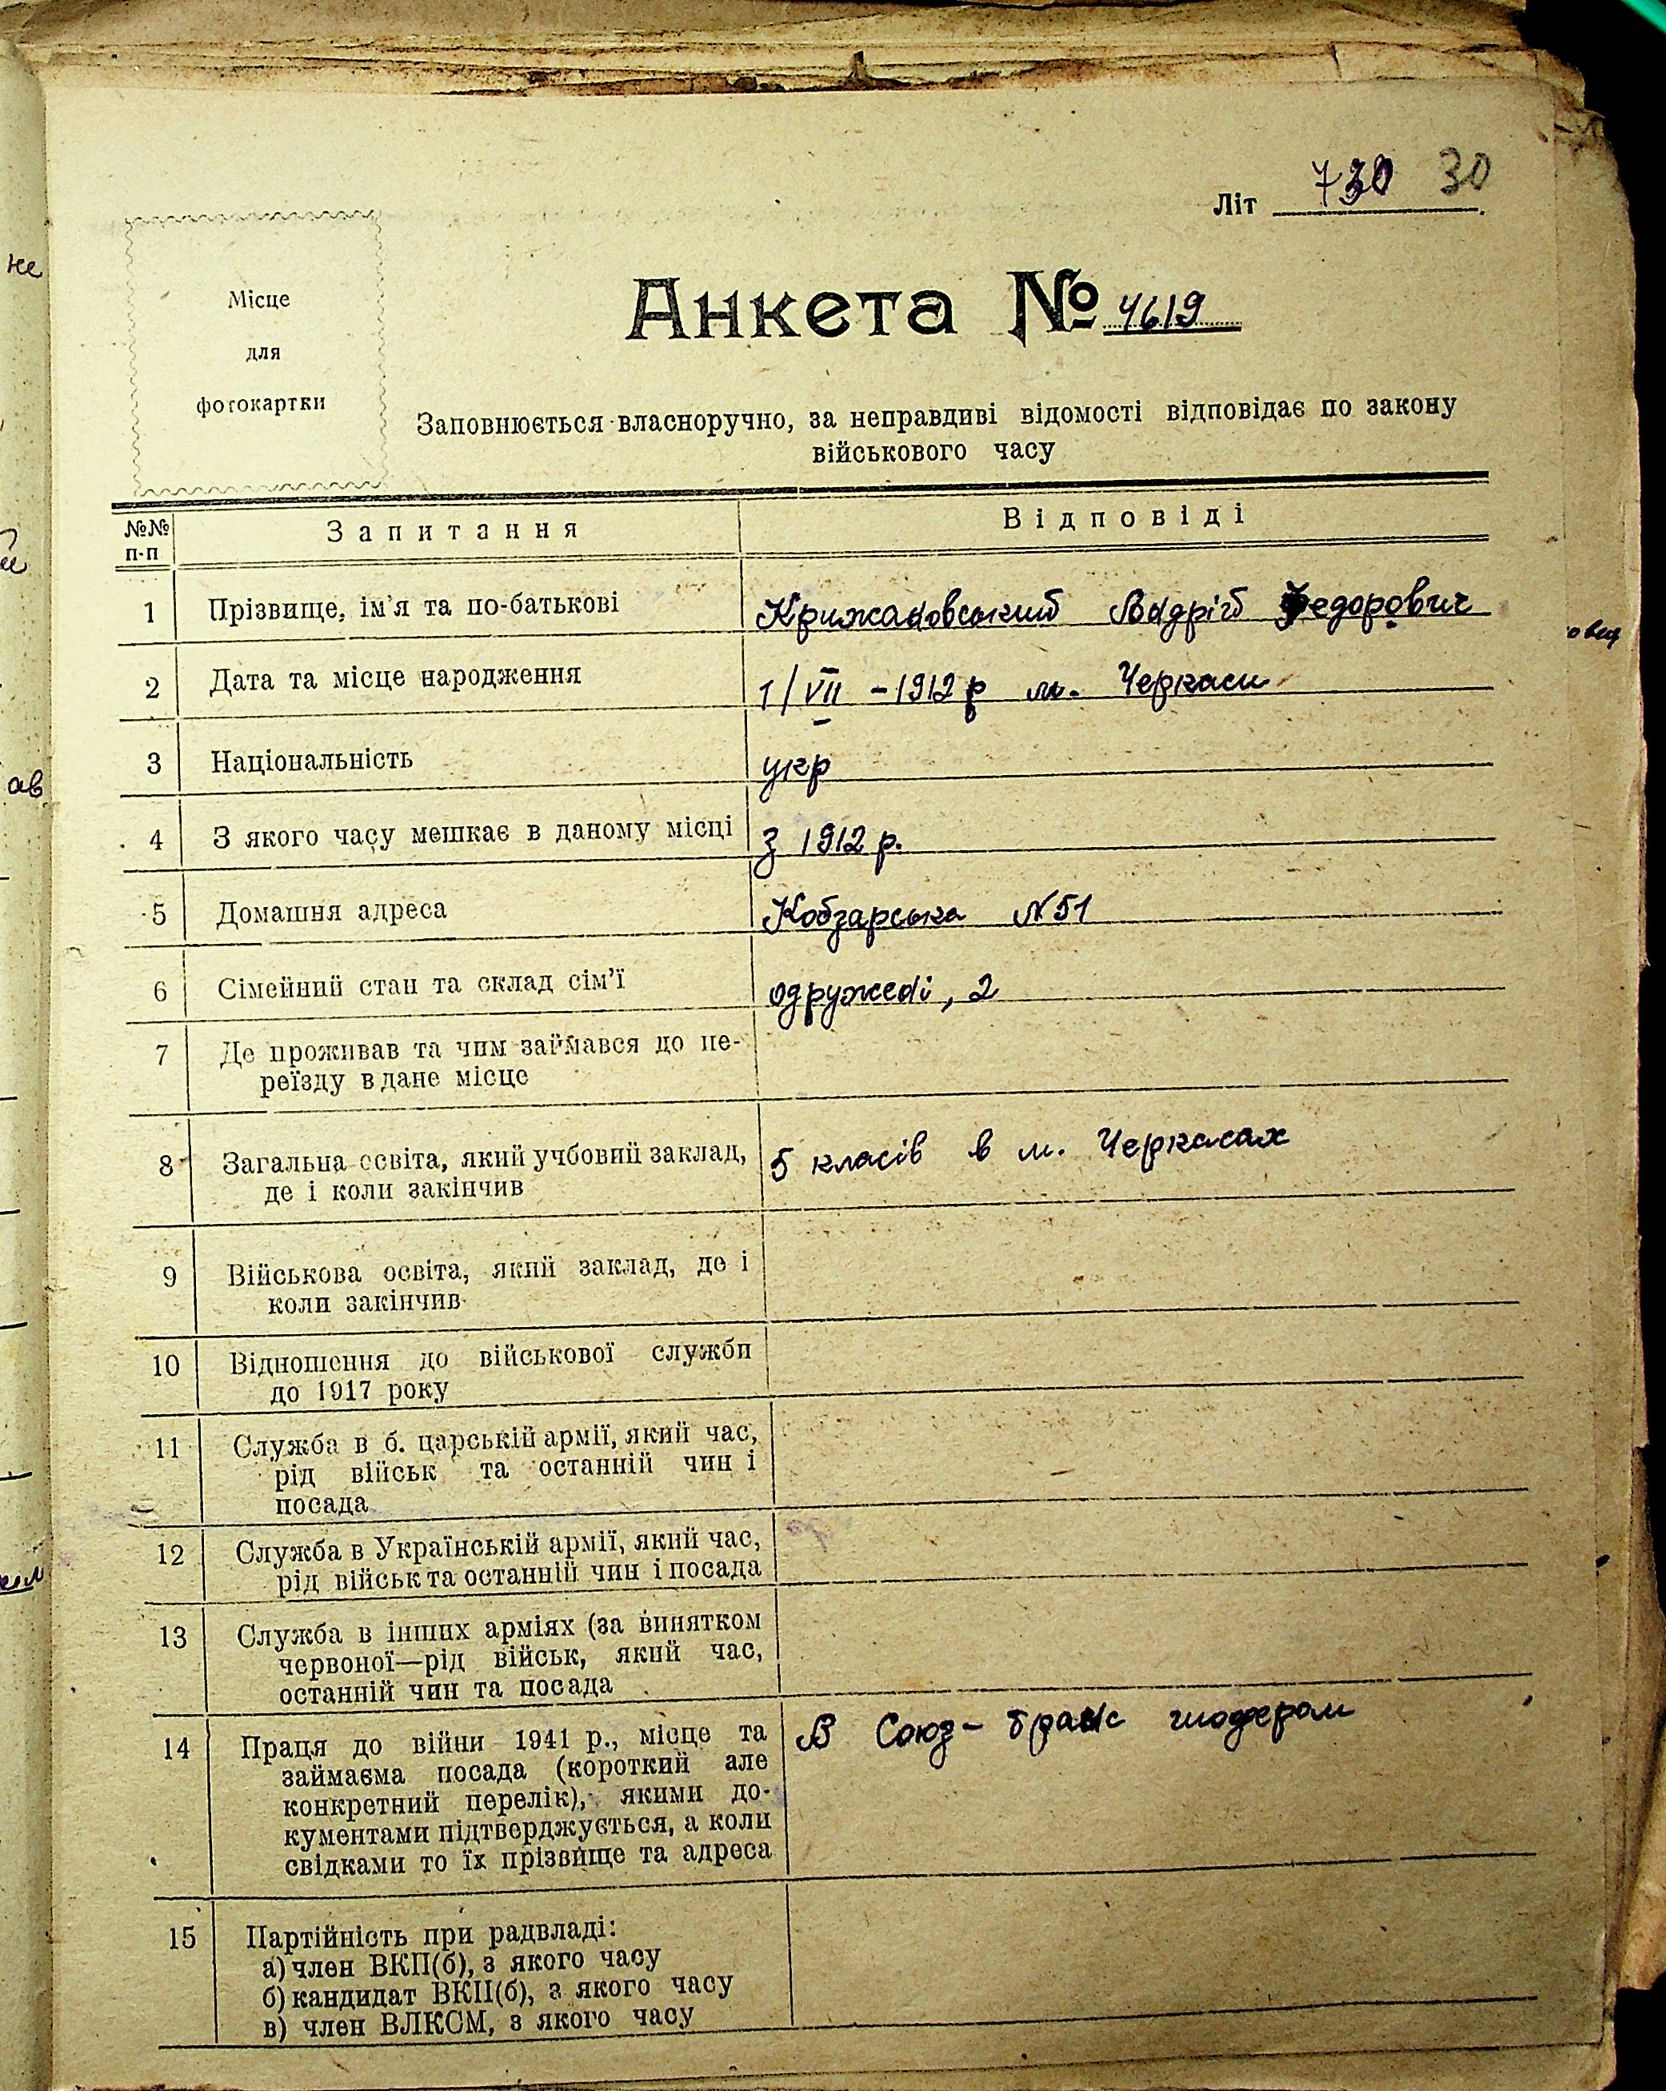 не
Літ 730 30
Місце
для
фотокартки
Анкета № 4619
Заповнюється власноручно, за неправдиві відомості відповідає по закону
військового часу
№№ п-п Запитання Відповіді
1 Прізвище, ім'я та по-батькові Крижановський Андрій Федорович
2 Дата та місце народження 1/VII – 1912 р м. Черкаси
3 Національність укр
ав
4 З якого часу мешкає в даному місці з 1912 р.
5 Домашня адреса Кобзарська N 51
6 Сімейний стан та склад сім'ї одружені, 2
7 Де проживав та чим займався до пе-
реїзду в дане місце
8 Загальна освіта, який учбовий заклад, 5 класів в м. Черкасах
де і коли закінчив
9 Військова освіта, який заклад, де і
коли закінчив
10 Відношення до військової служби
до 1917 року
11 Служба в б. царській армії, який час,
рід військ та останній чин і
посада
12 Служба в Українській армії, який час,
рід військ та останній чин і посада
13 Служба в інших арміях (за винятком
червоної—рід військ, який час,
останній чин та посада
14 Праця до війни 1941 р., місце та В Союз-транс шофером
займаєма посада (короткий але
конкретний перелік), якими до-
кументами підтверджується, а коли
свідками то їх прізвище та адреса
15 Партійність при радвладі:
а) член ВКП(б), з якого часу
б) кандидат ВКП(б), з якого часу
в) член ВЛКСМ, з якого часу